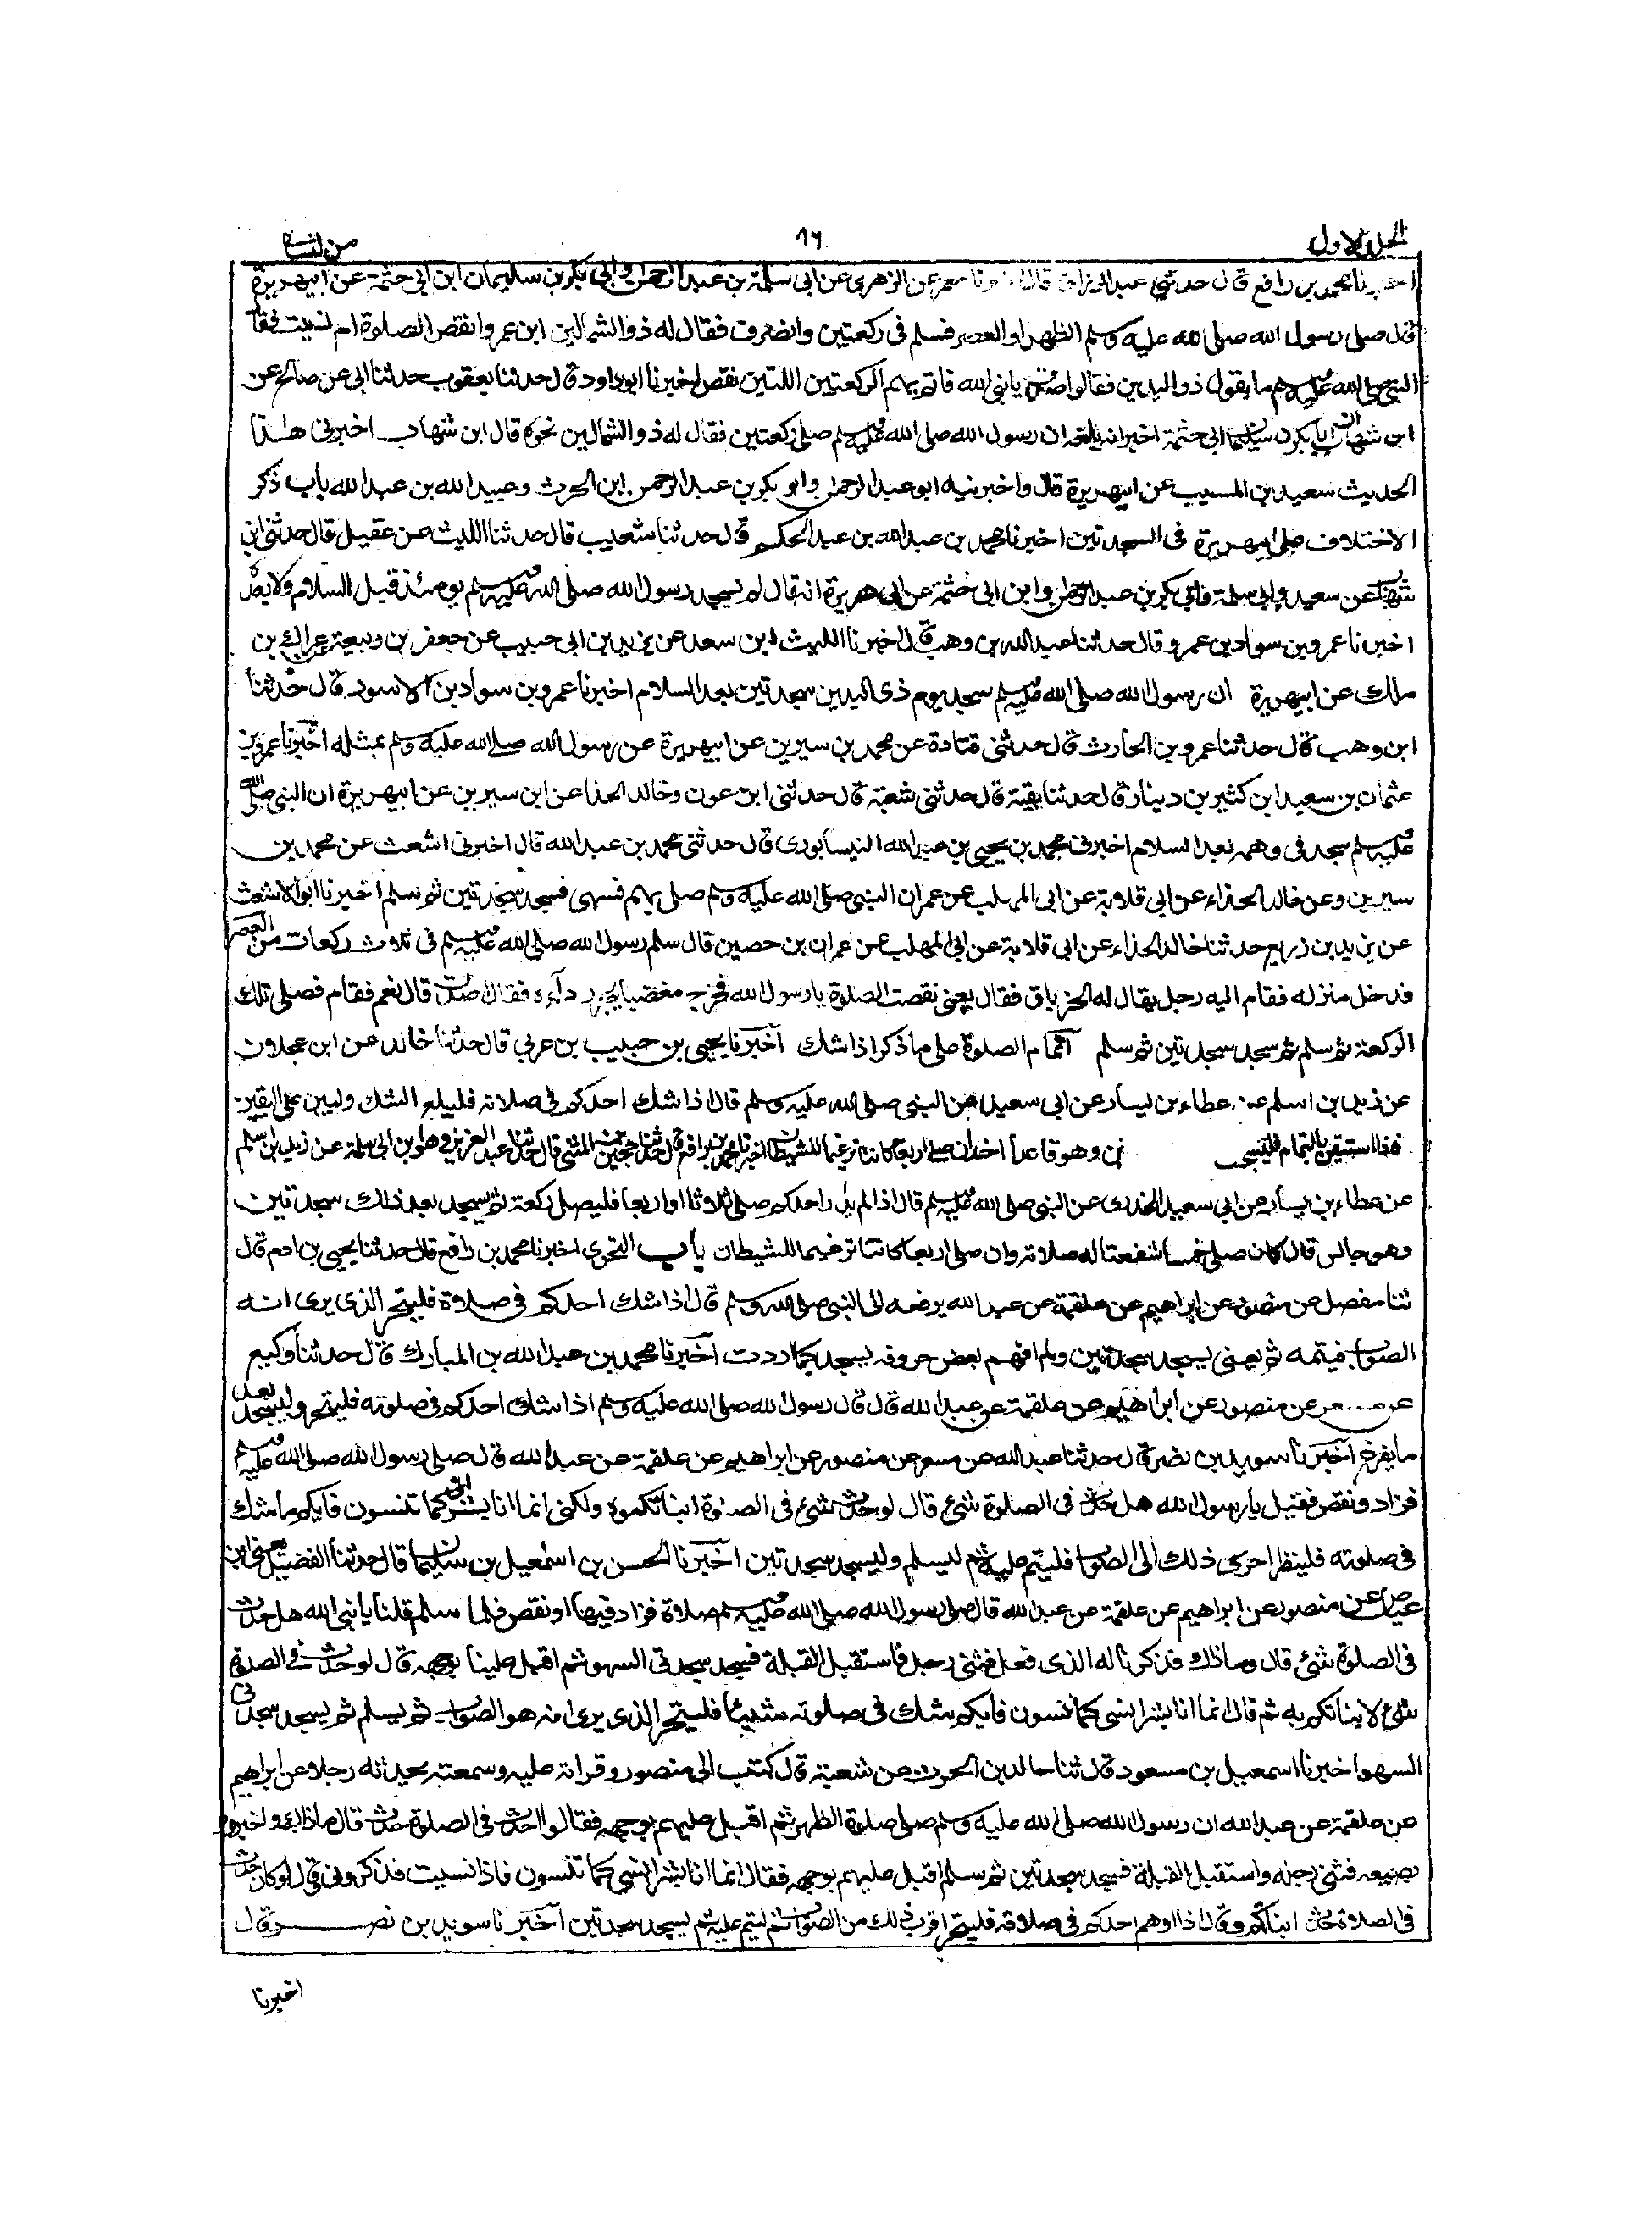 الجلد الاول
١٦
من النسائي
اخبرنا محمد بن رافع قال حدثني عبد الرزاق قال اخبرنا معمر عن الزهري عن ابي سلمة بن عبد الرحمن وابي بكر بن سليمان ابن ابي حثمة عن ابيهريرة
قال صلى رسول الله صلى الله عليه وسلم الظهر او العصر فسلم في ركعتين وانصرف فقال له ذو الشمالين ابن عمرو انقص الصلوة ام نسيت فقال
النبي صلى الله عليه وسلم ما يقول ذو اليدين فقالوا صدق يا نبي الله فاتم بهم الركعتين اللتين نقص اخبرنا ابو داود قال حدثنا يعقوب حدثنا ابي عن صالح عن
ابن شهاب ان ابا بكر بن سليمان ابي حثمة اخبره انه بلغه ان رسول الله صلى الله عليه وسلم صلى ركعتين فقال له ذو الشمالين نحوه قال ابن شهاب اخبرني هذا
الحديث سعيد بن المسيب عن ابيهريرة قال واخبرنيه ابو عبد الرحمن وابو بكر بن عبد الرحمن ابن الحرث وعبيد الله بن عبد الله باب ذكر
الاختلاف على ابيهريرة في السجدتين اخبرنا محمد بن عبد الله بن عبد الحكم قال حدثنا شعيب قال حدثنا الليث عن عقيل قال حدثني ابن
شهاب عن سعيد وابي سلمة وابي بكر بن عبد الرحمن وابن ابي حثمة عن ابي هريرة انه قال لم يسجد رسول الله صلى الله عليه وسلم يومئذ قبل السلام ولا بعد
اخبرنا عمرو بن سواد بن عمرو قال حدثنا عبد الله بن وهب قال اخبرنا الليث ابن سعد عن يزيد بن ابي حبيب عن جعفر بن ربيعة عن عراك بن
مالك عن ابيهريرة ان رسول الله صلى الله عليه وسلم سجد يوم ذي اليدين سجدتين بعد السلام اخبرنا عمرو بن سواد بن الاسود قال حدثنا
ابن وهب قال حدثنا عمرو بن الحارث قال حدثني قتادة عن محمد بن سيرين عن ابيهريرة عن رسول الله صلى الله عليه وسلم بمثله اخبرنا عمرو بن
عثمان بن سعيد ابن كثير بن دينار قال حدثنا بقية قال حدثني شعبة قال حدثني ابن عون وخالد الحذا عن ابن سيرين عن ابيهريرة ان النبي صلى الله
عليه وسلم سجد في وهمه بعد السلام اخبرنا محمد بن يحيى بن عبد الله النيسابوري قال حدثني محمد بن عبد الله قال اخبرني اشعث عن محمد بن
سيرين وعن خالد الحذاء عن ابي قلابة عن ابي المهلب عن عمران النبي صلى الله عليه وسلم صلى بهم فسهى فسجد سجدتين ثم سلم اخبرنا ابو الاشعث
عن يزيد بن زريع حدثنا خالد الحذاء عن ابي قلابة عن ابي المهلب عن عمران بن حصين قال سلم رسول الله صلى الله عليه وسلم في ثلاث ركعات من العصر
فدخل منزله فقام اليه رجل يقال له الخرباق فقال يعني نقصت الصلوة يا رسول الله فخرج مغضبا يجر رداءه فقال صدق قال نعم فقام فصلى تلك
الركعة ثم سلم ثم سجد سجدتين ثم سلم اتمام الصلوة على ما ذكر اذا شك اخبرنا يحيى بن حبيب بن عربي قال حدثنا خالد عن ابن عجلان
عن زيد بن اسلم عن عطاء بن يسار عن ابي سعيد عن النبي صلى الله عليه وسلم قال اذا شك احدكم في صلاته فليلغ الشك وليبن على اليقين
فاذا استيقن بالتمام فليسجد وهو قاعد اخبرنا محمد بن رافع قال حدثنا حجين بن المثنى قال حدثنا عبد العزيز وهو ابن ابي سلمة عن زيد بن اسلم
عن عطاء بن يسار عن ابي سعيد الخدري عن النبي صلى الله عليه وسلم قال اذا لم يدر احدكم صلى ثلاثا او اربعا فليصل ركعة ثم يسجد بعد ذلك سجدتين
وهو جالس قال كان صلى خمسا شفعتا له صلاته وان صلى اربعا كانتا ترغيما للشيطان باب التحري اخبرنا محمد بن رافع قال حدثنا يحيى بن ادم قال
ثنا مفضل عن منصور عن ابراهيم عن علقمة عن عبد الله يرفعه الى النبي صلى الله وسلم قال اذا شك احدكم في صلاة فليتحر الذي يرى انه
الصواب فيتمه ثم يعني يسجد سجدتين ولم افهم بعض حروفه يسجد كما اردت اخبرنا محمد بن عبد الله بن المبارك قال حدثنا وكيع
عن مسعر عن منصور عن ابراهيم عن علقمة عن عبد الله قال قال رسول الله صلى الله عليه وسلم اذا شك احدكم في صلوته فليتحر وليسجد بعد
ما يفرغ اخبرنا سويد بن نصر قال حدثنا عبد الله عن مسعر عن منصور عن ابراهيم عن علقمة عن عبد الله قال صلى رسول الله صلى الله عليه وسلم
فزاد ونقص فقيل يا رسول الله هل حدث في الصلوة شئ قال لو حدث شئ في الصلوة انباتكموه ولكني انما انا بشر انسى كما تنسون فايكم ما شك
في صلوته فلينظر احرى ذلك الى الصواب فليتم عليه ثم ليسلم وليسجد سجدتين اخبرنا الحسن بن اسمعيل بن سليمان قال حدثنا الفضيل يعني ابن
عياض عن منصور عن ابراهيم عن علقمة عن عبد الله قال صلى رسول الله صلى الله عليه وسلم صلاة فزاد فيها او نقص فلما سلم قلنا يا نبي الله هل حدث
في الصلوة شئ قال وما ذاك فذكرنا له الذي فعل فثنى رجله فاستقبل القبلة فسجد سجدتي السهو ثم اقبل علينا بوجهه قال لو حدث في الصلوة
شئ لانباتكم به ثم قال انما انا بشر انسى كما تنسون فايكم شك في صلوته شيئا فليتحر الذي يرى انه هو الصواب ثم يسلم ثم يسجد سجدتي
السهو اخبرنا اسمعيل بن مسعود قال ثنا خالد بن الحرث عن شعبة قال كتب الى منصور وقراته عليه وسمعته يحدثه رجلا عن ابراهيم
عن علقمة عن عبد الله ان رسول الله صلى الله عليه وسلم صلى صلوة الظهر ثم اقبل عليهم بوجهه فقالوا احدث في الصلوة حدث قال ما ذاك واخبروه
بصنيعه فثنى رجله واستقبل القبلة فسجد سجدتين ثم سلم اقبل عليهم بوجهه فقال انما انا بشر انسى كما تنسون فاذا نسيت فذكروني قال لو كان حدث
في الصلاة حدث انباتكم وقال اذا اوهم احدكم في صلاته فليتحر اقرب ذلك من الصواب ثم ليتم عليه ثم يسجد سجدتين اخبرنا سويد بن نصر قال
اخبرنا